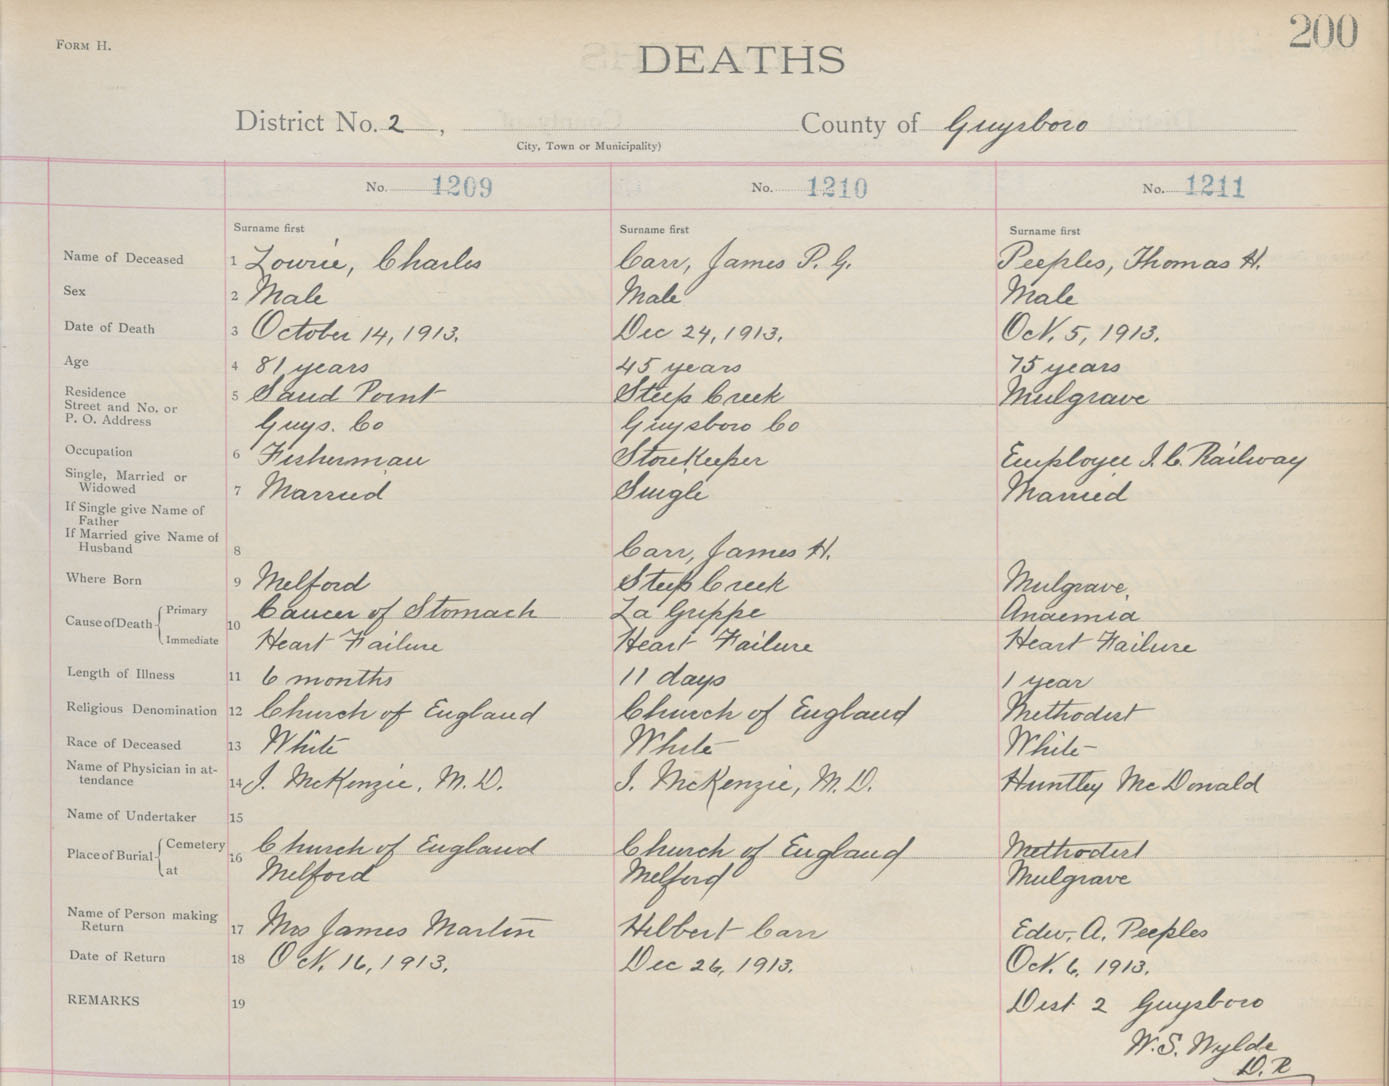 FORM H.
200
DEATHS
District No. 2, County of Guysboro
City, Town or Municipality)
No. 1209 No. 1210 No. 1211
Surname first Surname first Surname first
Name of Deceased 1 Lowrie, Charles Carr, James P. G. Peeples, Thomas H.
Sex 2 Male Male Male
Date of Death 3 October 14, 1913. Dec 24, 1913. Oct. 5, 1913.
Age 4 81 years 45 years 75 years
Residence 5 Sand Point Steep Creek Mulgrave
Street and No. or
P. O. Address Guys. Co Guysboro Co
Occupation 6 Fisherman Storekeeper Employee I. C. Railway
Single, Married or
Widowed 7 Married Single Married
If Single give Name of
Father
If Married give Name of
Husband 8 Carr, James H.
Where Born 9 Melford Steep Creek Mulgrave,
Cause of Death Primary 10 Cancer of Stomach La Grippe Anaemia
Immediate Heart Failure Heart Failure Heart Failure
Length of Illness 11 6 months 11 days 1 year
Religious Denomination 12 Church of England Church of England Methodist
Race of Deceased 13 White White White
Name of Physician in at-
tendance 14 J. McKenzie, M. D. J. McKenzie, M. D. Huntley McDonald
Name of Undertaker 15
Place of Burial Cemetery 16 Church of England Church of England Methodist
at Melford Melford Mulgrave
Name of Person making
Return 17 Mrs James Martin Hilbert Carr Edw. A. Peeples
Date of Return 18 Oct. 16, 1913. Dec 26, 1913. Oct. 6, 1913.
REMARKS 19 Dist 2 Guysboro
W. S. Wylde
D. R